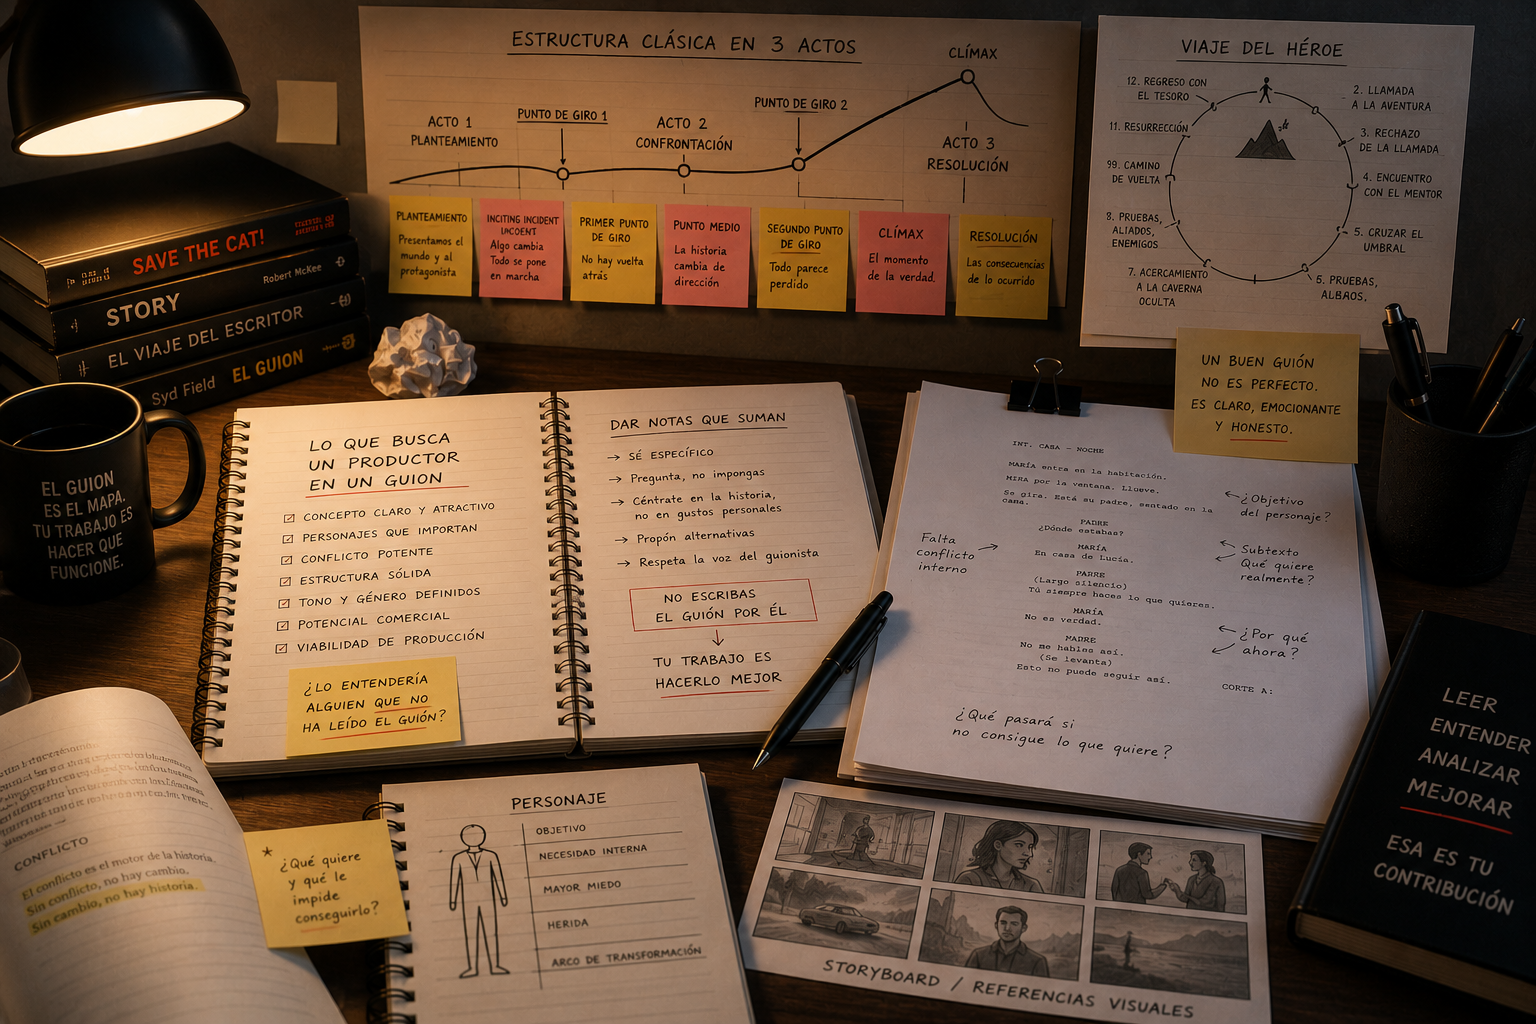 ESTRUCTURA CLÁSICA EN 3 ACTOS
CLÍMAX
PUNTO DE GIRO 2
PUNTO DE GIRO 1
ACTO 1
PLANTEAMIENTO
ACTO 2
CONFRONTACIÓN
ACTO 3
RESOLUCIÓN
PLANTEAMIENTO
Presentamos el
mundo y al
protagonista
INCITING INCIDENT
Algo cambia
Todo se pone
en marcha
PRIMER PUNTO
DE GIRO
No hay vuelta
atrás
PUNTO MEDIO
La historia
cambia de
dirección
SEGUNDO PUNTO
DE GIRO
Todo parece
perdido
CLÍMAX
El momento
de la verdad.
RESOLUCIÓN
Las consecuencias
de lo ocurrido
VIAJE DEL HÉROE
12. REGRESO CON
EL TESORO
2. LLAMADA
A LA AVENTURA
11. RESURRECCIÓN
3. RECHAZO
DE LA LLAMADA
99. CAMINO
DE VUELTA
4. ENCUENTRO
CON EL MENTOR
8. PRUEBAS,
ALIADOS,
ENEMIGOS
5. CRUZAR EL
UMBRAL
7. ACERCAMIENTO
A LA CAVERNA
OCULTA
5. PRUEBAS,
ALBAOS,
UN BUEN GUIÓN
NO ES PERFECTO.
ES CLARO, EMOCIONANTE
Y HONESTO.
SAVE THE CAT!
STORY
Robert McKee
EL VIAJE DEL ESCRITOR
Syd Field EL GUION
EL GUION
ES EL MAPA.
TU TRABAJO ES
HACER QUE
FUNCIONE.
LO QUE BUSCA
UN PRODUCTOR
EN UN GUION
CONCEPTO CLARO Y ATRACTIVO
PERSONAJES QUE IMPORTAN
CONFLICTO POTENTE
ESTRUCTURA SÓLIDA
TONO Y GÉNERO DEFINIDOS
POTENCIAL COMERCIAL
VIABILIDAD DE PRODUCCIÓN
¿LO ENTENDERÍA
ALGUIEN QUE NO
HA LEÍDO EL GUIÓN?
DAR NOTAS QUE SUMAN
→ SÉ ESPECÍFICO
→ Pregunta, no impongas
→ Céntrate en la historia,
no en gustos personales
→ Propón alternativas
→ Respeta la voz del guionista
NO ESCRIBAS
EL GUIÓN POR ÉL
TU TRABAJO ES
HACERLO MEJOR
INT. CASA - NOCHE
MARÍA entra en la habitación.
MIRA por la ventana. Llueve.
Se gira. Está su padre, sentado en la
cama.
PADRE
¿Dónde estabas?
MARÍA
En casa de Lucía.
PARRE
(Largo silencio)
Tú siempre haces lo que quieres.
MARÍA
No es verdad.
MADRE
No me hables así.
(Se levanta)
Esto no puede seguir así.
CORTE A:
Falta
conflicto
interno
¿Objetivo
del personaje?
Subtexto
Qué quiere
realmente?
¿Por qué
ahora?
¿Qué pasará si
no consigue lo que quiere?
LEER
ENTENDER
ANALIZAR
MEJORAR
ESA ES TU
CONTRIBUCIÓN
CONFLICTO
El conflicto es el motor de la historia.
Sin conflicto, no hay cambio.
Sin cambio, no hay historia.
* ¿Qué quiere
y qué le
impide
conseguirlo?
PERSONAJE
OBJETIVO
NECESIDAD INTERNA
MAYOR MIEDO
HERIDA
ARCO DE TRANSFORMACIÓN
STORYBOARD / REFERENCIAS VISUALES